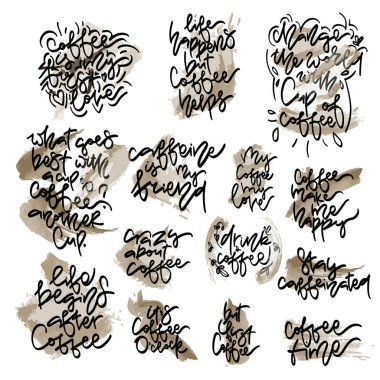 Coffee
is my
first
love
life
happens
but
Coffee
helps
change
the world
with a
Cup of
coffee
what goes
best with
a cup of
Coffee?
another
Cup.
caffeine
is my
friend
My
Coffee
my
lover
Coffee
make
me
happy
crazy
about
coffee
drink
coffee
Stay
caffeinated
life
begins
after
Coffee
it's
Coffee
O'clock
but
first
Coffee
Coffee
time